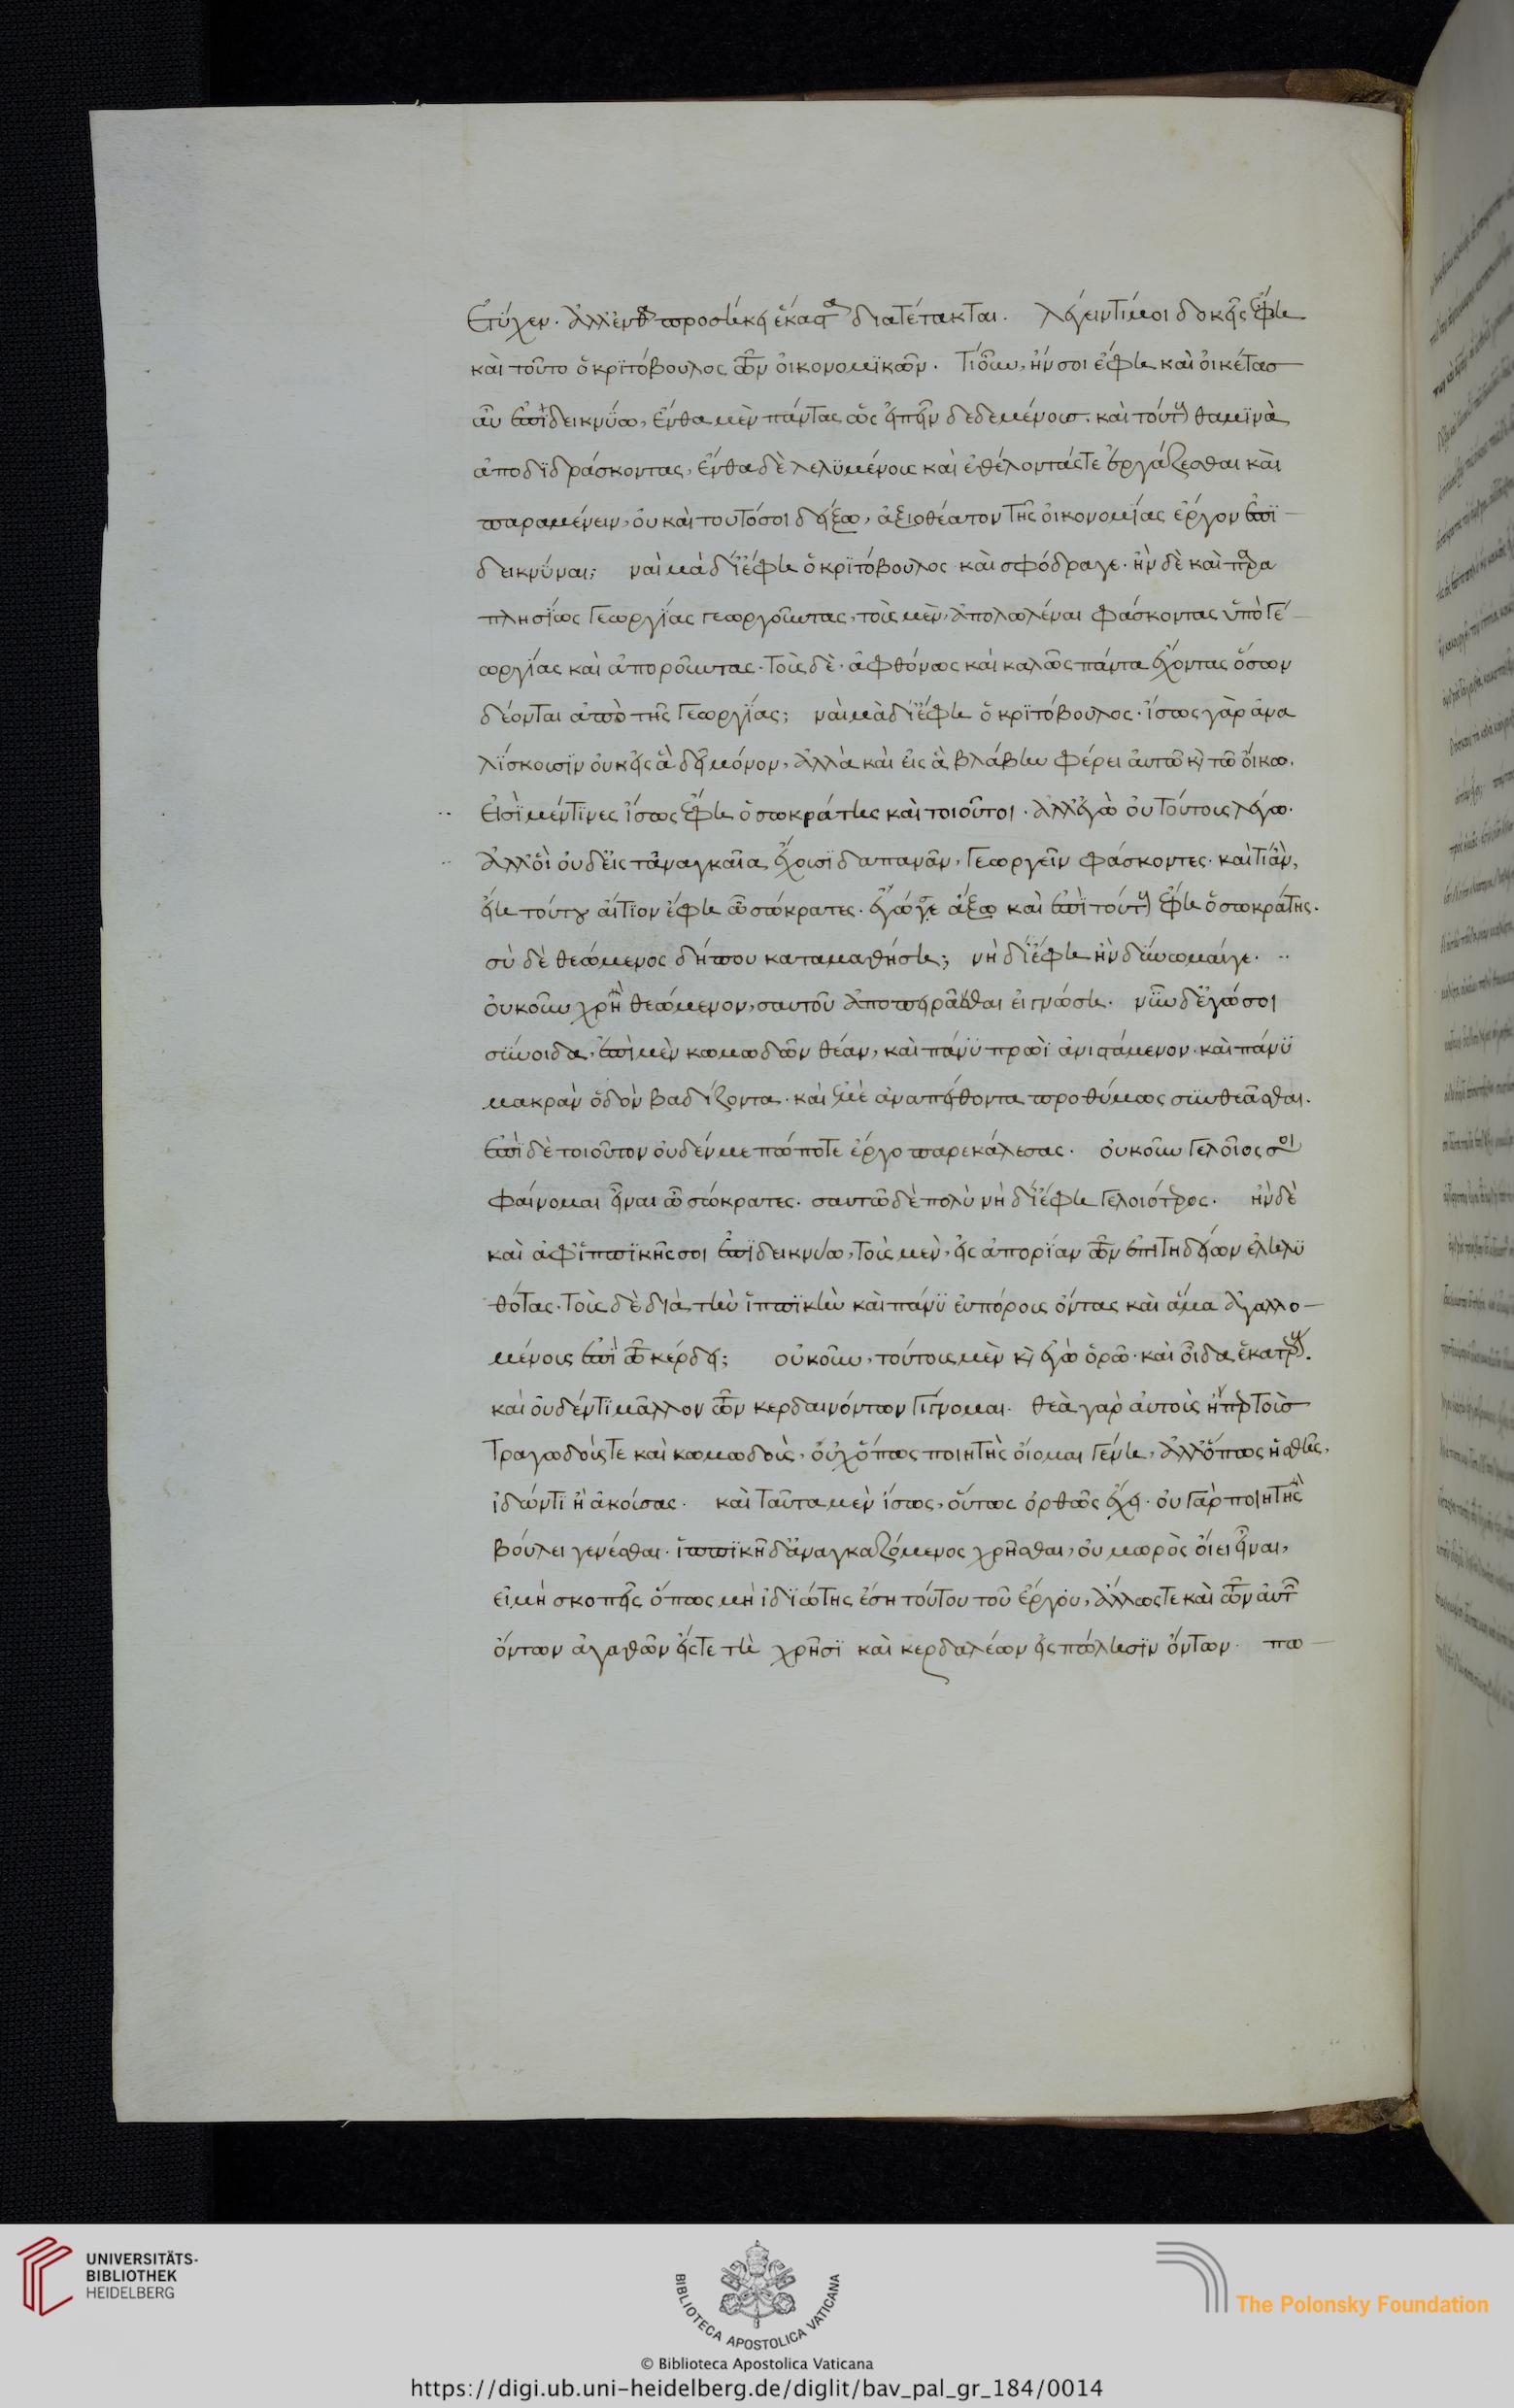 ἔτυχεν. ἀλλ' ἔνθα προσήκει ἕκαστα διατέτακται. λέγειν τί μοι δοκεῖς ἔφη
καὶ τοῦτο ὁ κριτόβουλος τῶν οἰκονομικῶν. τί οὖν, ἤν σοι ἔφη καὶ οἰκέτας
αὖ ἐπιδεικνύω, ἔνθα μὲν πάντας ὡς εἰπεῖν δεδεμένους. καὶ τούτους θαμινὰ
ἀποδιδράσκοντας, ἔνθα δὲ λελυμένους καὶ ἐθέλοντάς τε ἐργάζεσθαι καὶ
παραμένειν, οὐ καὶ τοῦτό σοι δείξω, ἀξιοθέατον τῆς οἰκονομίας ἔργον ἐπι
δεικνύναι; ναὶ μὰ δί' ἔφη ὁ κριτόβουλος καὶ σφόδρα γε. ἢν δὲ καὶ παρα
πλησίως γεωργίας γεωργοῦντας, τοὺς μὲν, ἀπολωλέναι φάσκοντας ὑπὸ γε
ωργίας καὶ ἀποροῦντας. τοὺς δὲ. ἀφθόνως καὶ καλῶς πάντα ἔχοντας ὅσων
δέονται ἀπὸ τῆς γεωργίας; ναὶ μὰ δί' ἔφη ὁ κριτόβουλος. ἴσως γὰρ ἀνα
λίσκουσιν οὐκ εἰς ἃ δεῖ μόνον, ἀλλὰ καὶ εἰς ἃ βλάβην φέρει αὐτῶ κ τῶ οἴκω.
εἰσὶ μέν τινες ἴσως ἔφη ὁ σωκράτης καὶ τοιοῦτοι. ἀλλ' ἐγὼ οὐ τούτους λέγω.
ἀλλ' οἳ οὐδ' εἰς τἀναγκαῖα ἔχουσι δαπανᾶν, γεωργεῖν φάσκοντες. καὶ τί ἂν,
εἴη τούτου αἴτιον ἔφη ὦ σώκρατες. ἐγώ σε ἄξω καὶ ἐπὶ τούτους ἔφη ὁ σωκράτης.
σὺ δὲ θεώμενος δήπου καταμαθήση; νὴ δί' ἔφη ἢν δύνωμαί γε.
οὐκοῦν χρὴ θεώμενον, σαυτοῦ ἀποπειρᾶσθαι εἰ γνώση. νῦν δ' ἐγώ σοι
σύνοιδα, ἐπὶ μὲν κωμωδῶν θέαν, καὶ πάνυ πρωὶ ἀνιστάμενον. καὶ πάνυ
μακρὰν ὁδὸν βαδίζοντα. καὶ ἐμὲ ἀναπείθοντα προθύμως συνθεᾶσθαι.
ἐπὶ δὲ τοιοῦτον οὐδέν με πώποτε ἔργο παρεκάλεσας. οὐκοῦν γελοῖός σοι
φαίνομαι εἶναι ὦ σώκρατες. σαυτῶ δὲ πολὺ νὴ δί' ἔφη γελοιότερος. ἢν δὲ
καὶ ἀφ' ἱππικῆς σοι ἐπιδεικνύω, τοὺς μὲν, εἰς ἀπορίαν τῶν ἐπιτηδείων ἐληλυ
θότας. τοὺς δὲ διὰ τὴν ἱππικὴν καὶ πάνυ εὐπόρους ὄντας καὶ ἅμα ἀγαλλο
μένους ἐπὶ τῶ κέρδει; οὐκοῦν, τούτους μὲν κ ἐγὼ ὁρῶ. καὶ οἶδα ἑκατέρους.
καὶ οὐδέν τι μᾶλλον τῶν κερδαινόντων γίγνομαι. θεᾶ γὰρ αὐτοὺς ᾗπερ τοὺς
τραγωδούς τε καὶ κωμωδοὺς, οὐχ ὅπως ποιητὴς οἴομαι γένη, ἀλλ' ὅπως ἡσθῇς.
ἰδών τι ἢ ἀκούσας. καὶ ταῦτα μὲν ἴσως, οὕτως ὀρθῶς ἔχει. οὐ γὰρ ποιητὴς
βούλει γενέσθαι. ἱππικῆ δ' ἀναγκαζόμενος χρῆσθαι, οὐ μωρὸς οἴει εἶναι,
εἰ μὴ σκοπεῖς ὅπως μὴ ἰδιώτης ἔση τούτου τοῦ ἔργου, ἄλλως τε καὶ τῶν αὐτῶν
ὄντων ἀγαθῶν εἴς τε τὴ χρῆσι καὶ κερδαλέων εἰς πώλησιν ὄντων. πω
UNIVERSITÄTS-
BIBLIOTHEK
HEIDELBERG
BIBLIOTECA APOSTOLICA VATICANA
The Polonsky Foundation
© Biblioteca Apostolica Vaticana
https://digi.ub.uni-heidelberg.de/diglit/bav_pal_gr_184/0014